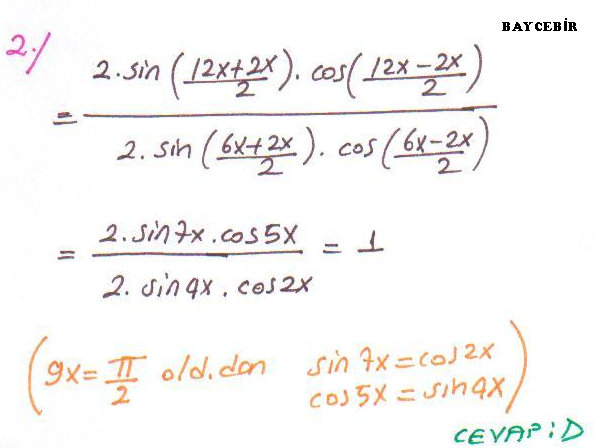 BAYCEBİR
2./
= 2.sin(12x+2x/2).cos(12x-2x/2) / 2.sin(6x+2x/2).cos(6x-2x/2)
= 2.sin7x.cos5x / 2.sin4x.cos2x = 1
(9x=π/2 old.dan sin7x=cos2x
cos5x=sin4x)
CEVAP:D